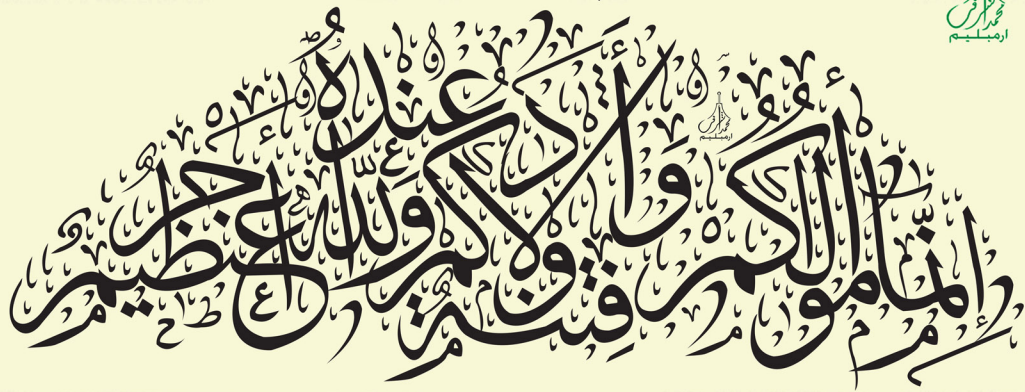 إنما أموالكم وأولادكم فتنة والله عنده أجر عظيم
ارمبليم
ارمبليم